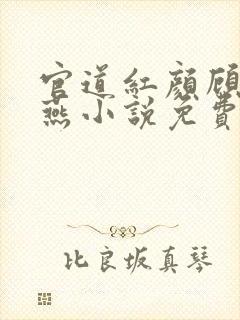 官道紅顏顧
燕小說免費
比良坂真琴